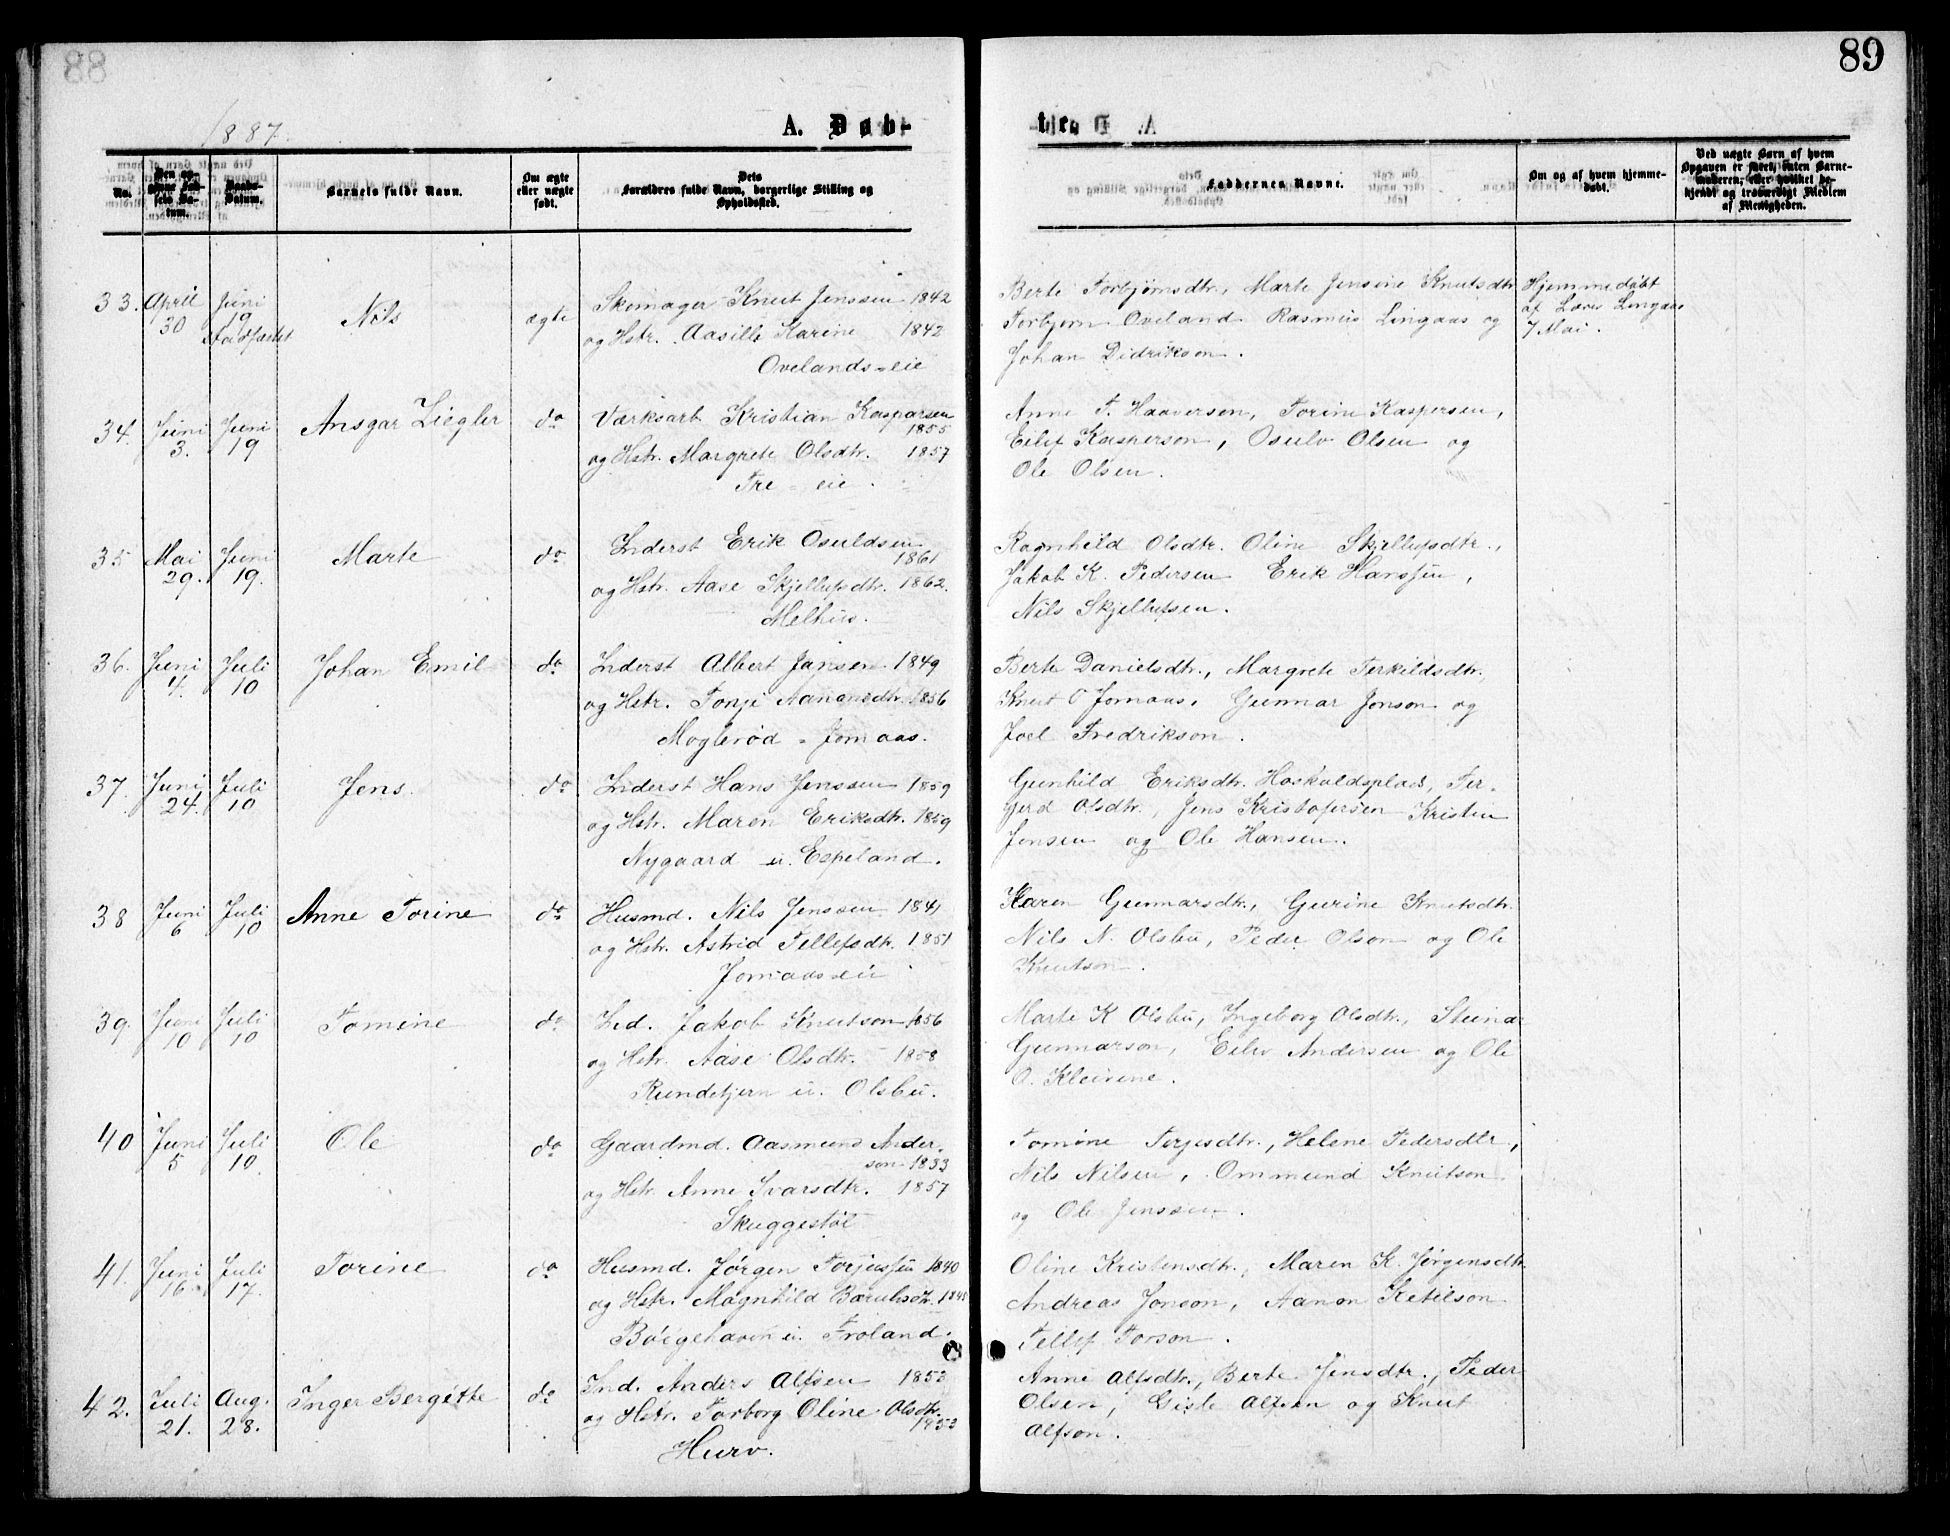 89
1887.
A. Døb-
te
No.
Den op-
givne Fød-
sels Da-
tum.
Daabs-
Datum.
Barnets fulde Navn.
Om ægte
eller uægte
født.
Dets
Forældres fulde Navn, borgerlige Stilling og
Opholdssted.
Faddernes Navne.
Om og af hvem hjemme-
døbt.
Ved uægte Børn af hvem
Opgaven er skeet, enten Barne-
moderen, eller hvilket be-
kjendt og troværdigt Medlem
af Menigheden.
33. April 30 Juni 19 Stadfæstet Nils ægte
Skomager Knut Jenssen 1842
og Hstr. Aasille Karine 1842
Ovelands-eie
Berte Torbjørnsdtr., Marte Jensine Knutsdtr
Torbjørn Oveland Rasmus Lingaas og
Johan Didrikson.
Hjemmedøbt
af Lars Lingaas
7 Mai.
34. Juni 3. Juni 19 Ansgar Ziegler do
Værksarb. Kristian Kasparsen
1855
og Hstr. Margrete Olsdtr. 1857
Fre-eie.
Anne T. Haaverson, Torine Kaspersen,
Eilif Kasperson, Osulv Olsen og
Ole Olsen.
35 Mai 29. Juni 19. Marte do
Inderst Erik Osuldsen
1861
og Hstr. Aase Skjellufsdtr. 1862.
Melhus.
Ragnhild Olsdtr. Oline Skjellufsdtr.,
Jakob K. Pedersen Erik Hanssen,
Nils Skjellufsen.
36. Juni 4. Juli 10 Johan Emil do
Inderst Albert Jansen 1849
og Hstr. Tonje Aanonsdtr. 1856
Moglerød - Jomaas.
Berte Danielsdtr., Margrete Terkildsdtr.,
Knut O Jomaas, Gunnar Jonson og
Joel Fredrikson.
37. Juni 24. Juli 10 Jens do
Inderst Hans Jenssen 1859
og Hstr. Maren Eriksdtr. 1859
Nygaard u. Espeland.
Gunhild Eriksdtr. Haskuldsplads, Tor-
gerd Olsdtr., Jens Kristofersen Kristen
Jensen og Ole Hansen.
38 Juni 6 Juli 10 Anne Torine do
Husmd. Nils Jenssen 1841
og Hstr. Astrid Tellefsdtr. 1851
Jomaas-eie
Karen Gunnarsdtr., Gurine Knutsdtr.
Nils N. Olsbu, Peder Olson og Ole
Knutson.
39. Juni 10 Juli 10 Tomine do
Ind. Jakob Knutson 1856
og Hstr. Aase Olsdtr. 1858
Rundetjern u. Olsbu.
Marte K Olsbu, Ingeborg Olsdtr., Steinar
Gunnarson, Eilev Andersen og Ole
O. Kleivene.
40 Juni 5 Juli 10. Ole do
Gaardmd. Aasmund Ander-
son 1833
og Hstr. Anne Ivarsdtr. 1857
Skuggestøl
Tomine Terjesdtr., Helene Pedersdtr,
Nils Nilsen, Ommund Knutson
og Ole Jenssen.
41. Juni 16 Juli 17. Torine do
Husmd. Jørgen Torjussen 1840
og Hstr. Magnhild Baruhsdtr. 1845
Bøigehaven u. Froland.
Oline Kristensdtr., Maren K. Jørgensdtr.
Andreas Jonson, Aanon Ketilson
Tellef Torson.
42. Juli 21. Aug. 28. Inger Bergitte do
Ind. Anders Alfsen 1853
og Hstr. Torborg Oline Olsdtr.
1853
Hurv.
Anne Alfsdtr., Berte Jensdtr., Peder
Olsen, Gisle Alfsen og Knut
Alfson.